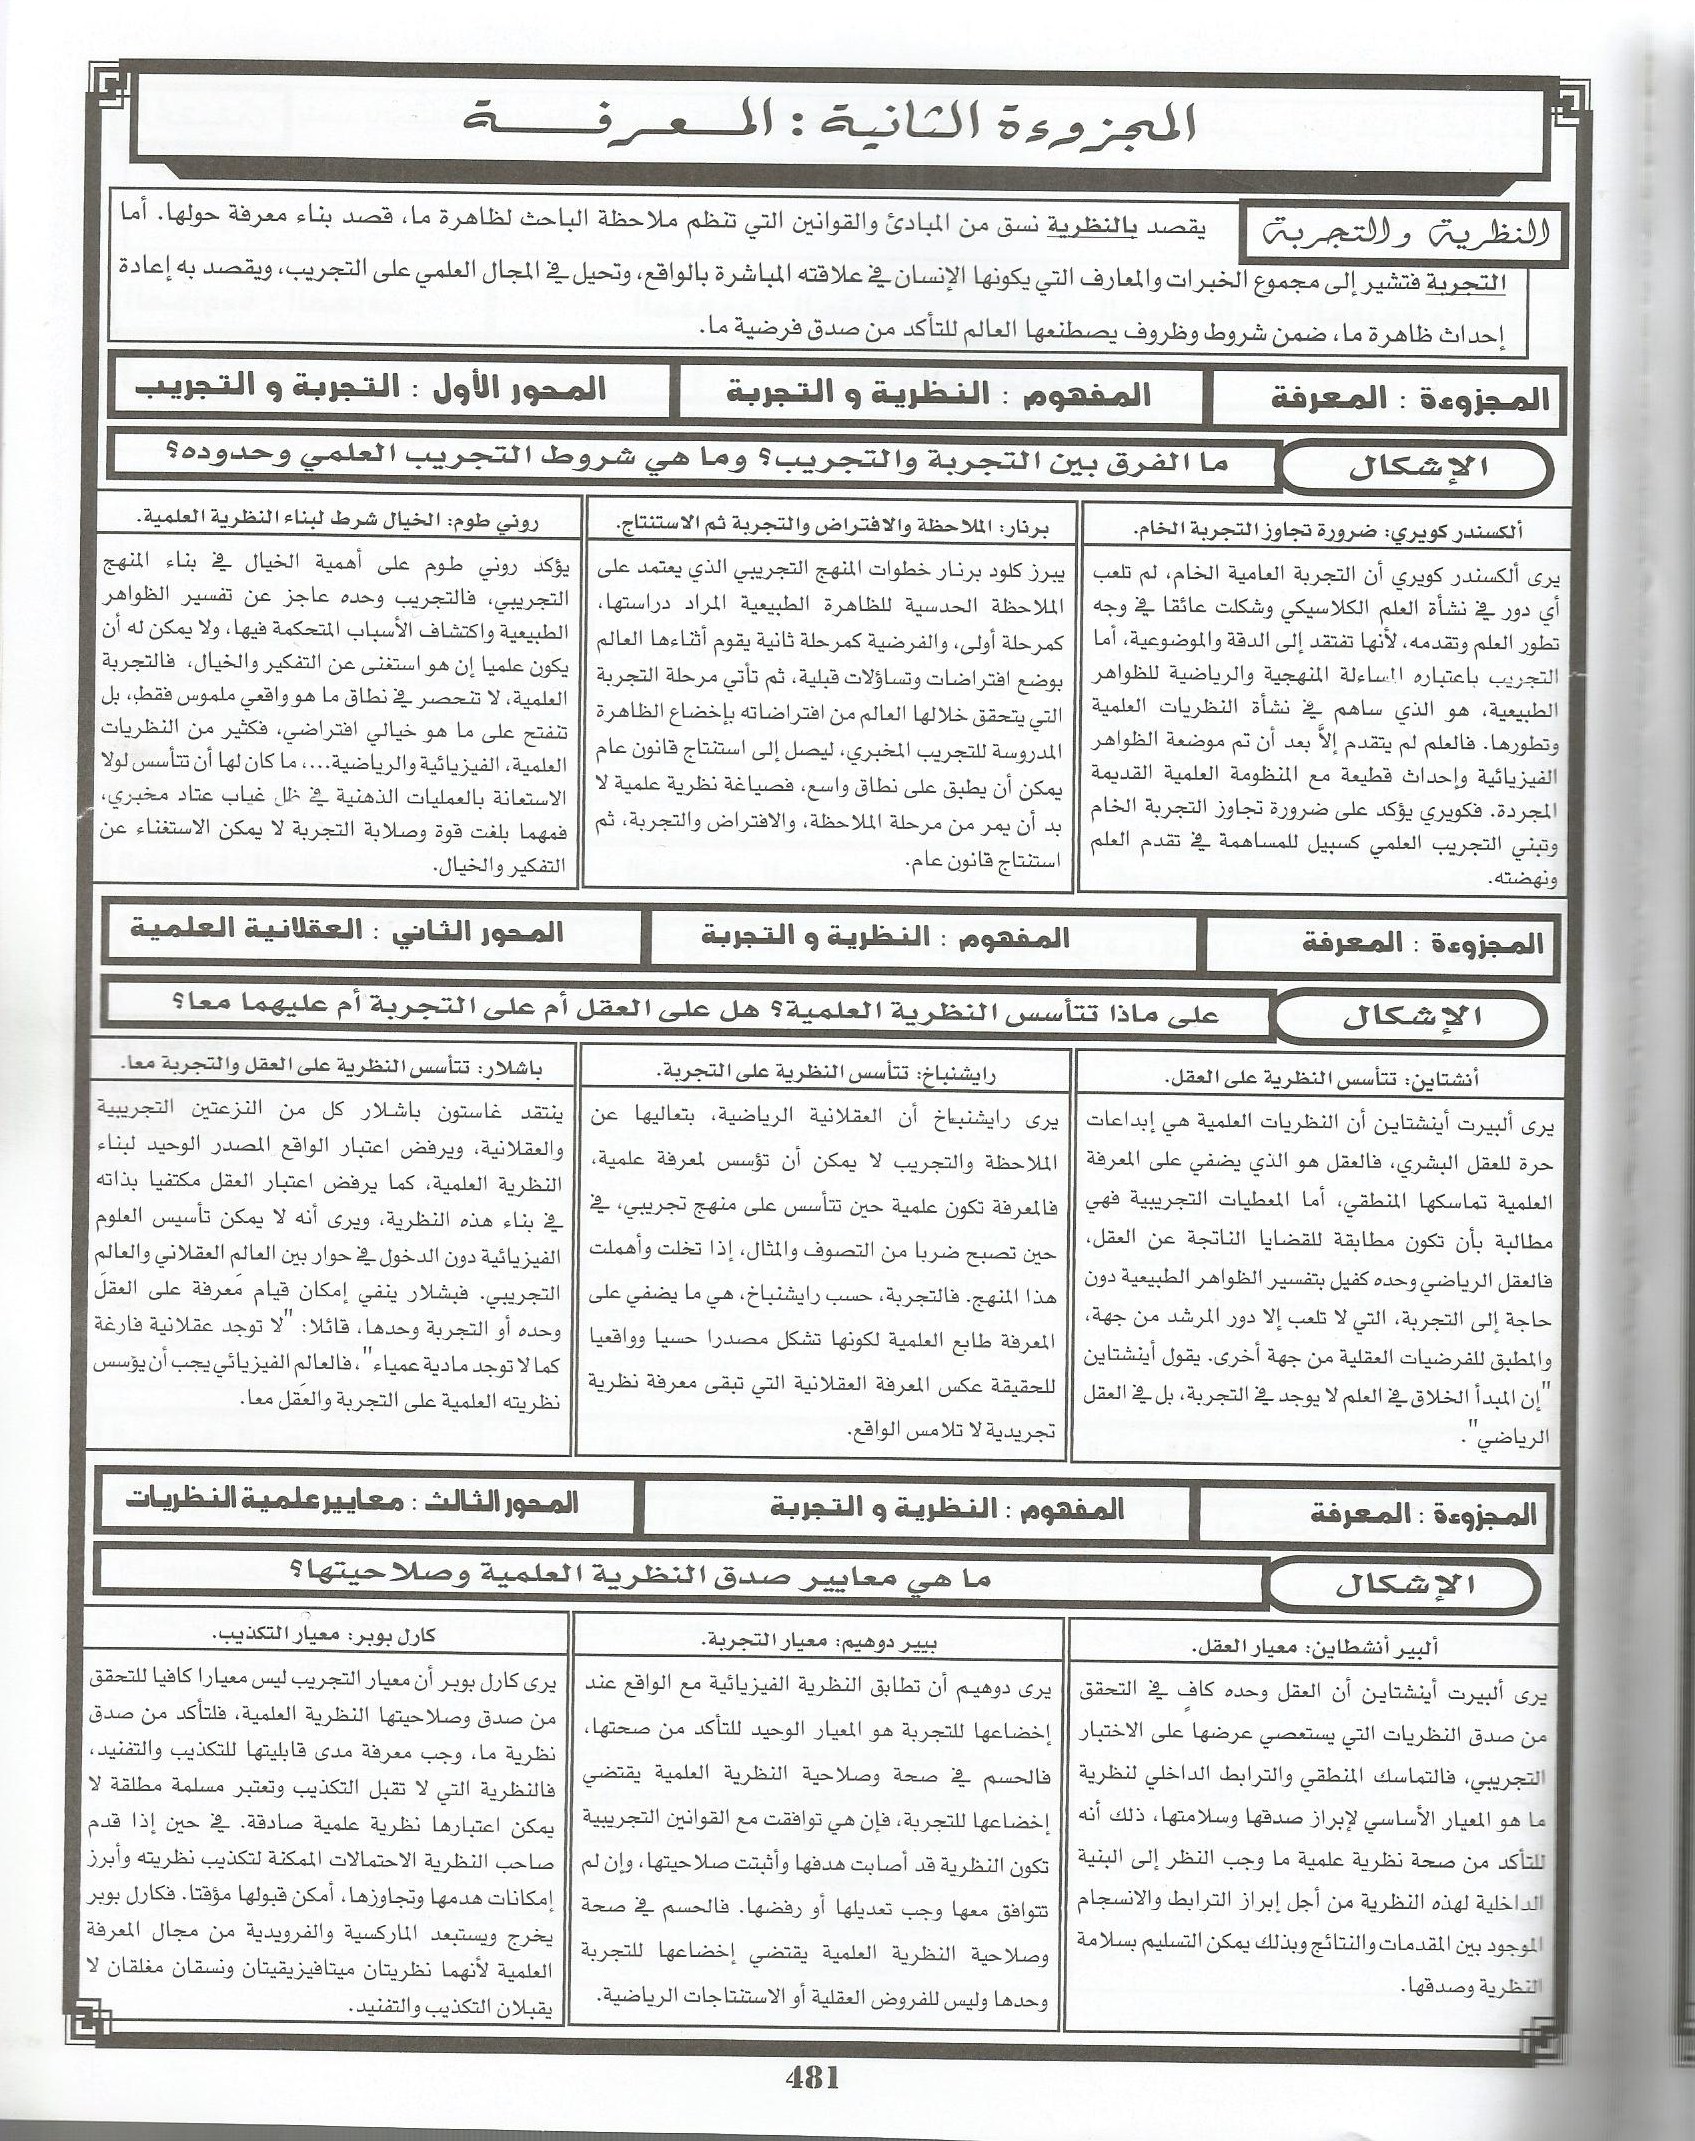 المجزوءة الثانية : المعرفة
النظرية والتجربة
يقصد بالنظرية نسق من المبادئ والقوانين التي تنظم ملاحظة الباحث لظاهرة ما، قصد بناء معرفة حولها. أما
التجربة فتشير إلى مجموع الخبرات والمعارف التي يكونها الإنسان في علاقته المباشرة بالواقع، وتحيل في المجال العلمي على التجريب، ويقصد به إعادة
إحداث ظاهرة ما، ضمن شروط وظروف يصطنعها العالم للتأكد من صدق فرضية ما.
المجزوءة : المعرفة
المفهوم : النظرية و التجربة
المحور الأول : التجربة و التجريب
الإشكال
ما الفرق بين التجربة والتجريب؟ وما هي شروط التجريب العلمي وحدوده؟
ألكسندر كويري: ضرورة تجاوز التجربة الخام.
يرى ألكسندر كويري أن التجربة العامية الخام، لم تلعب
أي دور في نشأة العلم الكلاسيكي وشكلت عائقا في وجه
تطور العلم وتقدمه، لأنها تفتقد إلى الدقة والموضوعية، أما
التجريب باعتباره المساءلة المنهجية والرياضية للظواهر
الطبيعية، هو الذي ساهم في نشأة النظريات العلمية
وتطورها. فالعلم لم يتقدم إلاَّ بعد أن تم موضعة الظواهر
الفيزيائية وإحداث قطيعة مع المنظومة العلمية القديمة
المجردة. فكويري يؤكد على ضرورة تجاوز التجربة الخام
وتبني التجريب العلمي كسبيل للمساهمة في تقدم العلم
ونهضته.
برنار: الملاحظة والافتراض والتجربة ثم الاستنتاج.
يبرز كلود برنار خطوات المنهج التجريبي الذي يعتمد على
الملاحظة الحدسية للظاهرة الطبيعية المراد دراستها،
كمرحلة أولى، والفرضية كمرحلة ثانية يقوم أثناءها العالم
بوضع افتراضات وتساؤلات قبلية، ثم تأتي مرحلة التجربة
التي يتحقق خلالها العالم من افتراضاته بإخضاع الظاهرة
المدروسة للتجريب المخبري، ليصل إلى استنتاج قانون عام
يمكن أن يطبق على نطاق واسع، فصياغة نظرية علمية لا
بد أن يمر من مرحلة الملاحظة، والافتراض والتجربة، ثم
استنتاج قانون عام.
روني طوم: الخيال شرط لبناء النظرية العلمية.
يؤكد روني طوم على أهمية الخيال في بناء المنهج
التجريبي، فالتجريب وحده عاجز عن تفسير الظواهر
الطبيعية واكتشاف الأسباب المتحكمة فيها، ولا يمكن له أن
يكون علميا إن هو استغنى عن التفكير والخيال، فالتجربة
العلمية، لا تنحصر في نطاق ما هو واقعي ملموس فقط، بل
تنفتح على ما هو خيالي افتراضي، فكثير من النظريات
العلمية، الفيزيائية والرياضية...، ما كان لها أن تتأسس لولا
الاستعانة بالعمليات الذهنية في ظل غياب عتاد مخبري،
فمهما بلغت قوة وصلابة التجربة لا يمكن الاستغناء عن
التفكير والخيال.
المجزوءة : المعرفة
المفهوم : النظرية و التجربة
المحور الثاني : العقلانية العلمية
الإشكال
على ماذا تتأسس النظرية العلمية؟ هل على العقل أم على التجربة أم عليهما معا؟
أنشتاين: تتأسس النظرية على العقل.
يرى ألبيرت أينشتاين أن النظريات العلمية هي إبداعات
حرة للعقل البشري، فالعقل هو الذي يضفي على المعرفة
العلمية تماسكها المنطقي، أما المعطيات التجريبية فهي
مطالبة بأن تكون مطابقة للقضايا الناتجة عن العقل،
فالعقل الرياضي وحده كفيل بتفسير الظواهر الطبيعية دون
حاجة إلى التجربة، التي لا تلعب إلا دور المرشد من جهة،
والمطبق للفرضيات العقلية من جهة أخرى. يقول أينشتاين
"إن المبدأ الخلاق في العلم لا يوجد في التجربة، بل في العقل
الرياضي".
رايشنباخ: تتأسس النظرية على التجربة.
يرى رايشنباخ أن العقلانية الرياضية، بتعاليها عن
الملاحظة والتجريب لا يمكن أن تؤسس لمعرفة علمية،
فالمعرفة تكون علمية حين تتأسس على منهج تجريبي، في
حين تصبح ضربا من التصوف والمثال، إذا تخلت وأهملت
هذا المنهج. فالتجربة، حسب رايشنباخ، هي ما يضفي على
المعرفة طابع العلمية لكونها تشكل مصدرا حسيا وواقعيا
للحقيقة عكس المعرفة العقلانية التي تبقى معرفة نظرية
تجريدية لا تلامس الواقع.
باشلار: تتأسس النظرية على العقل والتجربة معا.
ينتقد غاستون باشلار كل من النزعتين التجريبية
والعقلانية، ويرفض اعتبار الواقع المصدر الوحيد لبناء
النظرية العلمية، كما يرفض اعتبار العقل مكتفيا بذاته
في بناء هذه النظرية، ويرى أنه لا يمكن تأسيس العلوم
الفيزيائية دون الدخول في حوار بين العالم العقلاني والعالم
التجريبي. فبشلار ينفي إمكان قيام معرفة على العقل
وحده أو التجربة وحدها، قائلا: "لا توجد عقلانية فارغة
كما لا توجد مادية عمياء"، فالعالم الفيزيائي يجب أن يؤسس
نظريته العلمية على التجربة والعقل معا.
المجزوءة : المعرفة
المفهوم : النظرية و التجربة
المحور الثالث : معايير علمية النظريات
الإشكال
ما هي معايير صدق النظرية العلمية وصلاحيتها؟
ألبير أنشطاين: معيار العقل.
يرى ألبيرت أينشتاين أن العقل وحده كافٍ في التحقق
من صدق النظريات التي يستعصي عرضها على الاختبار
التجريبي، فالتماسك المنطقي والترابط الداخلي لنظرية
ما هو المعيار الأساسي لإبراز صدقها وسلامتها، ذلك أنه
للتأكد من صحة نظرية علمية ما وجب النظر إلى البنية
الداخلية لهذه النظرية من أجل إبراز الترابط والانسجام
الموجود بين المقدمات والنتائج وبذلك يمكن التسليم بسلامة
النظرية وصدقها.
بيير دوهيم: معيار التجربة.
يرى دوهيم أن تطابق النظرية الفيزيائية مع الواقع عند
إخضاعها للتجربة هو المعيار الوحيد للتأكد من صحتها،
فالحسم في صحة وصلاحية النظرية العلمية يقتضي
إخضاعها للتجربة، فإن هي توافقت مع القوانين التجريبية
تكون النظرية قد أصابت هدفها وأثبتت صلاحيتها، وإن لم
تتوافق معها وجب تعديلها أو رفضها. فالحسم في صحة
وصلاحية النظرية العلمية يقتضي إخضاعها للتجربة
وحدها وليس للفروض العقلية أو الاستنتاجات الرياضية.
كارل بوبر: معيار التكذيب.
يرى كارل بوبر أن معيار التجريب ليس معيارا كافيا للتحقق
من صدق وصلاحيتها النظرية العلمية، فلتأكد من صدق
نظرية ما، وجب معرفة مدى قابليتها للتكذيب والتفنيد،
فالنظرية التي لا تقبل التكذيب وتعتبر مسلمة مطلقة لا
يمكن اعتبارها نظرية علمية صادقة. في حين إذا قدم
صاحب النظرية الاحتمالات الممكنة لتكذيب نظريته وأبرز
إمكانات هدمها وتجاوزها، أمكن قبولها مؤقتا. فكارل بوبر
يخرج ويستبعد الماركسية والفرويدية من مجال المعرفة
العلمية لأنهما نظريتان ميتافيزيقيتان ونسقان مغلقان لا
يقبلان التكذيب والتفنيد.
481